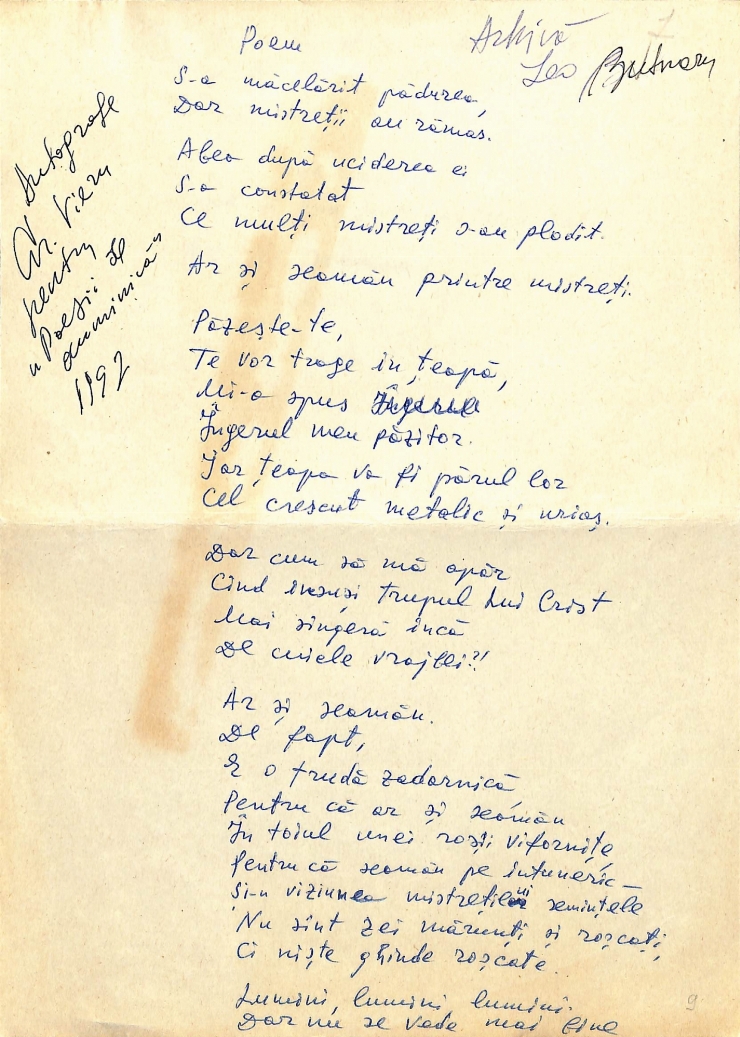 Poem
Arhivă
Leo Butnaru
7
S-a măcelărit pădurea,
Dar mistreții au rămas.
Abea după uciderea ei
S-a constatat
Ce mulți mistreți s-au plodit.
Ar și seamăn printre mistreți.
Păzește-te,
Te vor trage în țeapă,
Mi-a spus Îngerul
Îngerul meu păzitor.
Iar țeapa va fi părul lor
Cel crescut metalic și uriaș.
Dar cum să mă apăr
Cînd însuși trupul lui Crist
Mai sîngeră încă
De cuiele vrajbei?!
Ar și seamăn.
De fapt,
E o trudă zadarnică,
Pentru că ar și seamăn
În toiul unei roșii vifornițe,
Pentru că seamăn pe întuneric —
Și-n viziunea mistreților semințele
Nu sînt zei mărunți și roșcați,
Ci niște ghinde roșcate.
Lumini, lumini lumini.
Dar nu se vede mai bine
Autografe
Gr. Vieru
pentru
„Poezii de
duminică”
1992
9